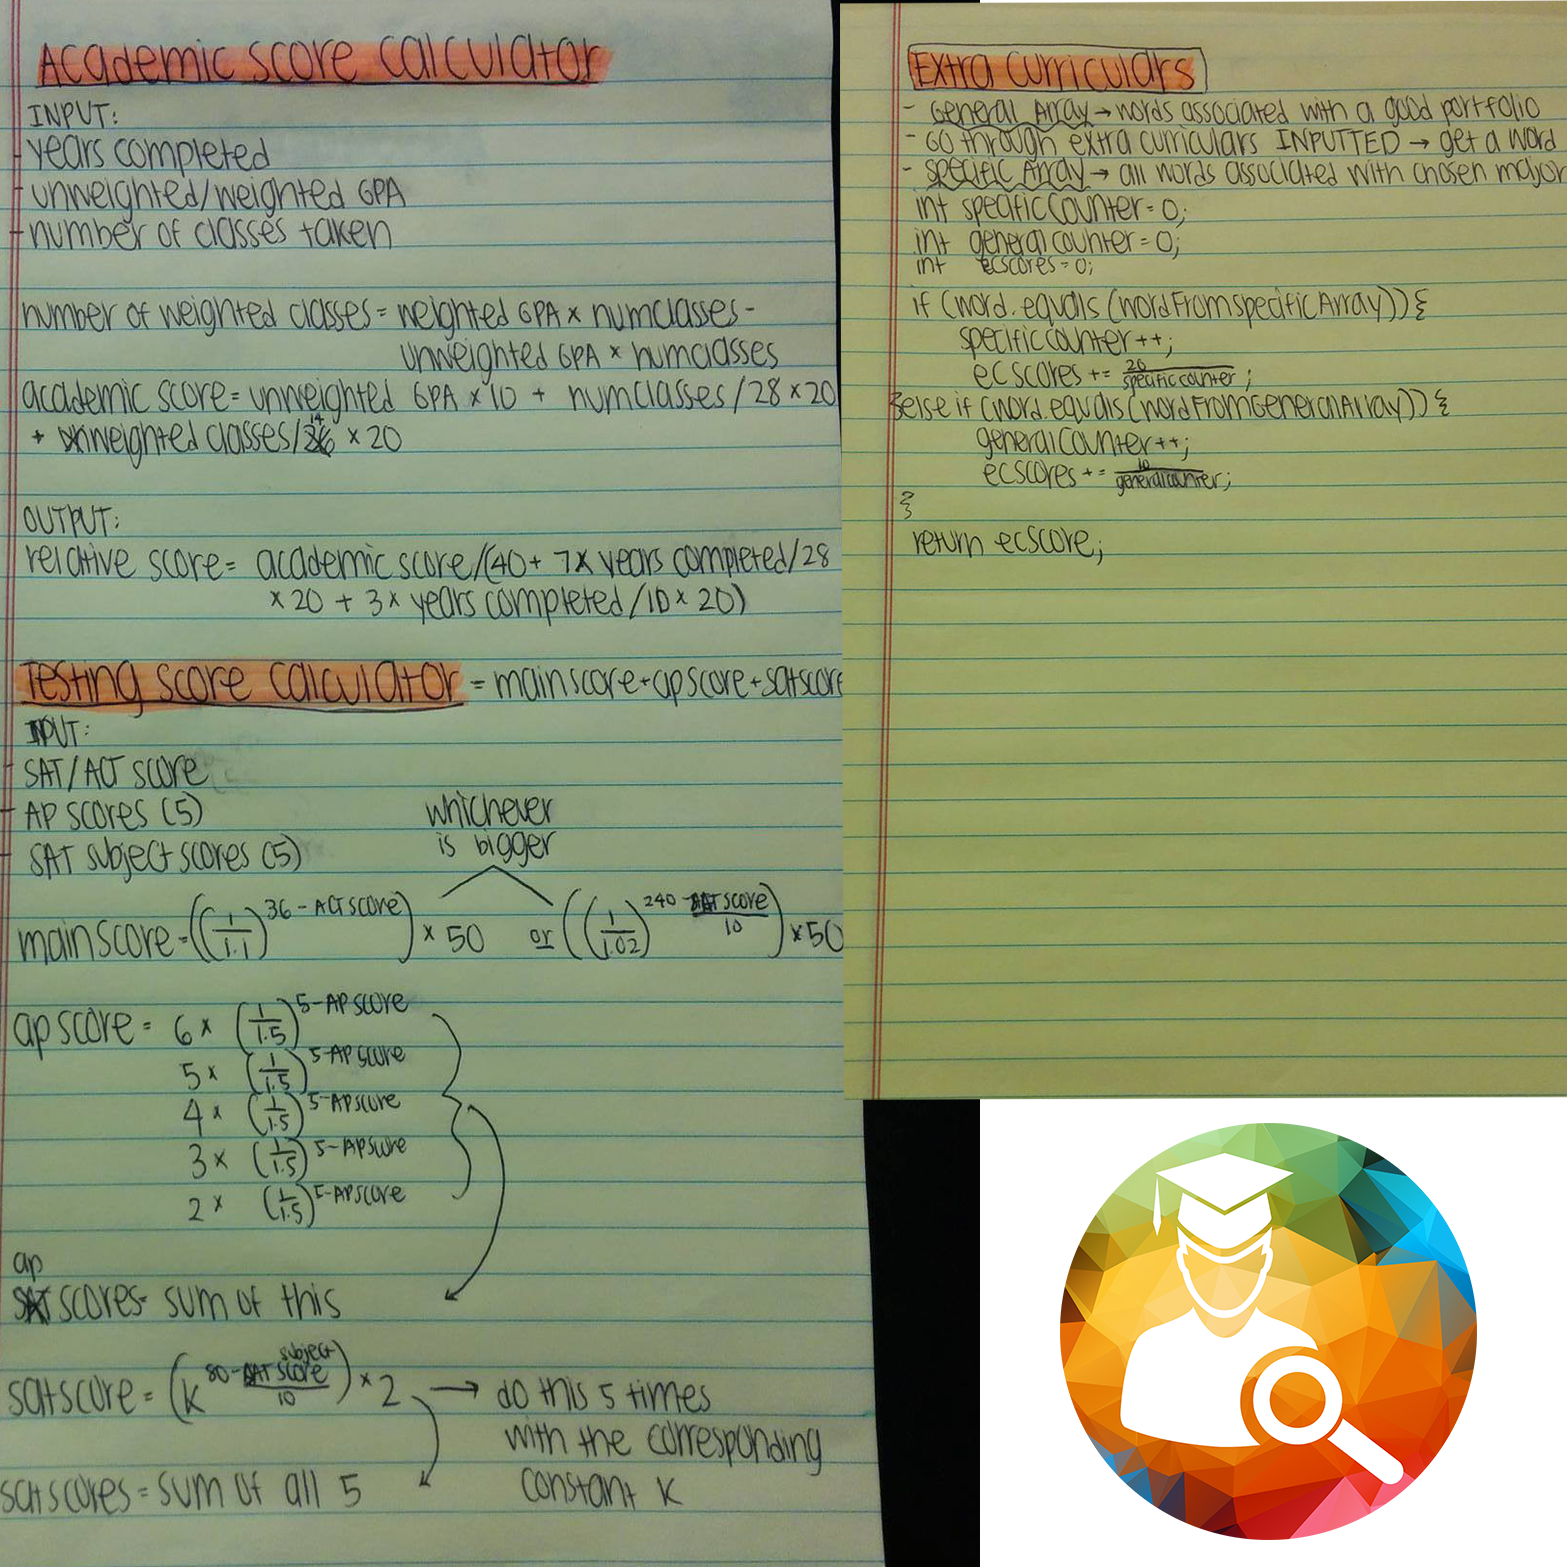 Academic score calculator
INPUT:
- years completed
- unweighted/weighted GPA
- number of classes taken
number of weighted classes = weighted GPA x numclasses -
unweighted GPA x numclasses
academic score = unweighted GPA x 10 + numclasses/28 x 20
+ weighted classes/14 x 20
OUTPUT:
relative score = academic score/(40 + 7 x years completed/28
x 20 + 3 x years completed/10 x 20)
Testing score calculator = mainscore + apscore + satscore
INPUT:
- SAT/ACT score
- AP scores (5)
- SAT subject scores (5)
whichever
is bigger
mainscore = ((1/1.1)^36 - ACT score) x 50 or ((1/1.02)^240 - SAT score/10) x 50
apscore = 6 x (1/1.5)^5-AP score
5 x (1/1.5)^5-AP score
4 x (1/1.5)^5-AP score
3 x (1/1.5)^5-AP score
2 x (1/1.5)^5-AP score
ap
scores = sum of this
satscore = (k^80 - SAT subject score/10) x 2 → do this 5 times
with the corresponding
constant k
satscores = sum of all 5
Extra curriculars
- General Array → words associated with a good portfolio
- Go through extra curriculars INPUTTED → get a word
- specific Array → all words associated with chosen major
int specificcounter = 0;
int generalcounter = 0;
int ecscores = 0;
if (word.equals(wordFromspecificArray)){
specificcounter++;
ecscores += 20/specificcounter;
}else if (word.equals(wordFromGeneralArray)){
generalcounter++;
ecscores += 10/generalcounter;
}
return ecscore;